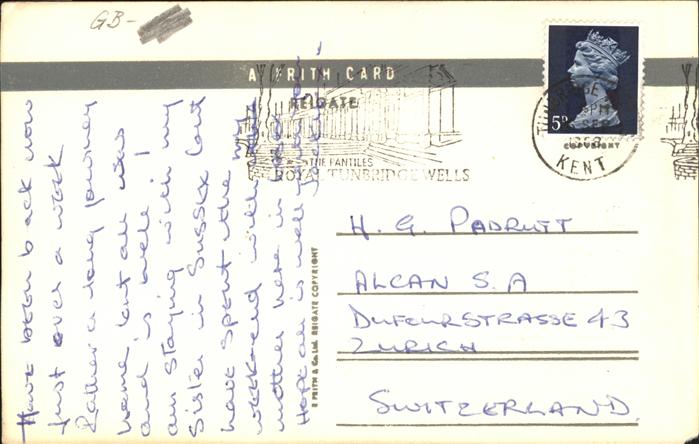 GB-
A FRITH CARD
REIGATE
THE PANTILES
ROYAL TUNBRIDGE WELLS
5D
TUNBRIDGE
KENT
COPYRIGHT
Have been back now
just over a week
Rather a long journey
home but all was
and is well. I
am staying with my
Sister in Sussex but
have spent the
weekend with my
mother here in
Hope all is well
H. G. PADRUTT
ALCAN S.A
DUFOURSTRASSE 43
ZURICH
SWITZERLAND.
© FRITH & Co. Ltd. REIGATE COPYRIGHT